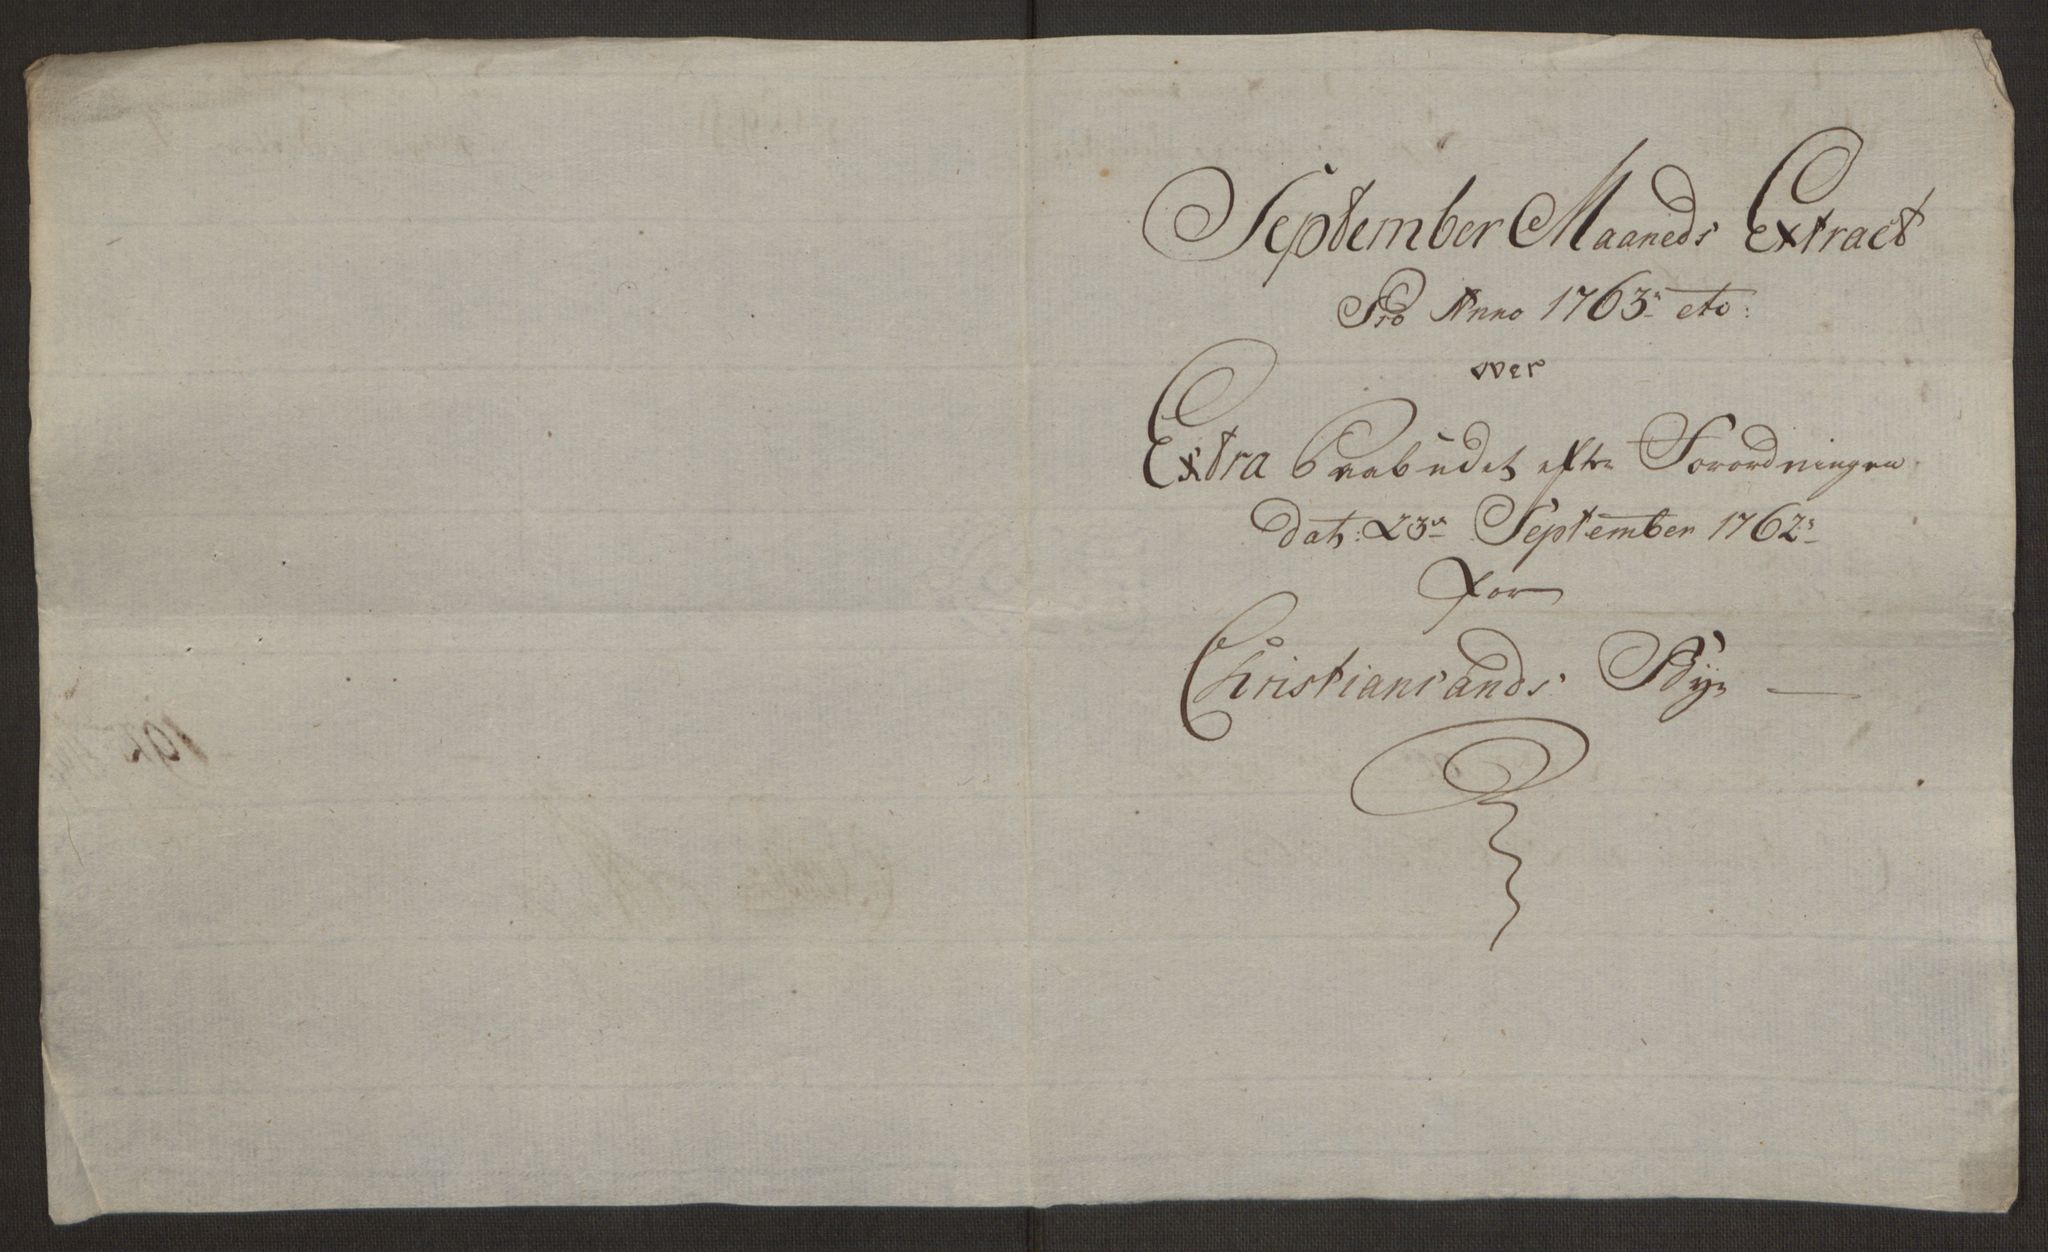 September Maaneds Extract
Pro Anno 1763 etc:
over
Extra Paabudet efter Forordningen
dat: 23de September 1762
for
Christiansands Bye